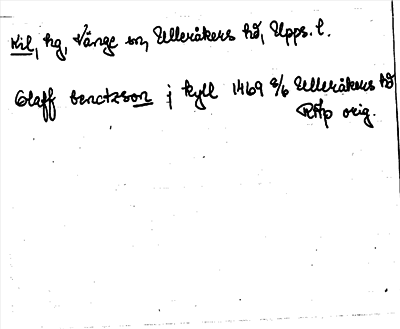 Kil, hg, Vänge sn, Ulleråkers hd, Upps. l.
Olaff benctzson j kyll 1469 2/6 Ulleråkers hd
RAp orig.